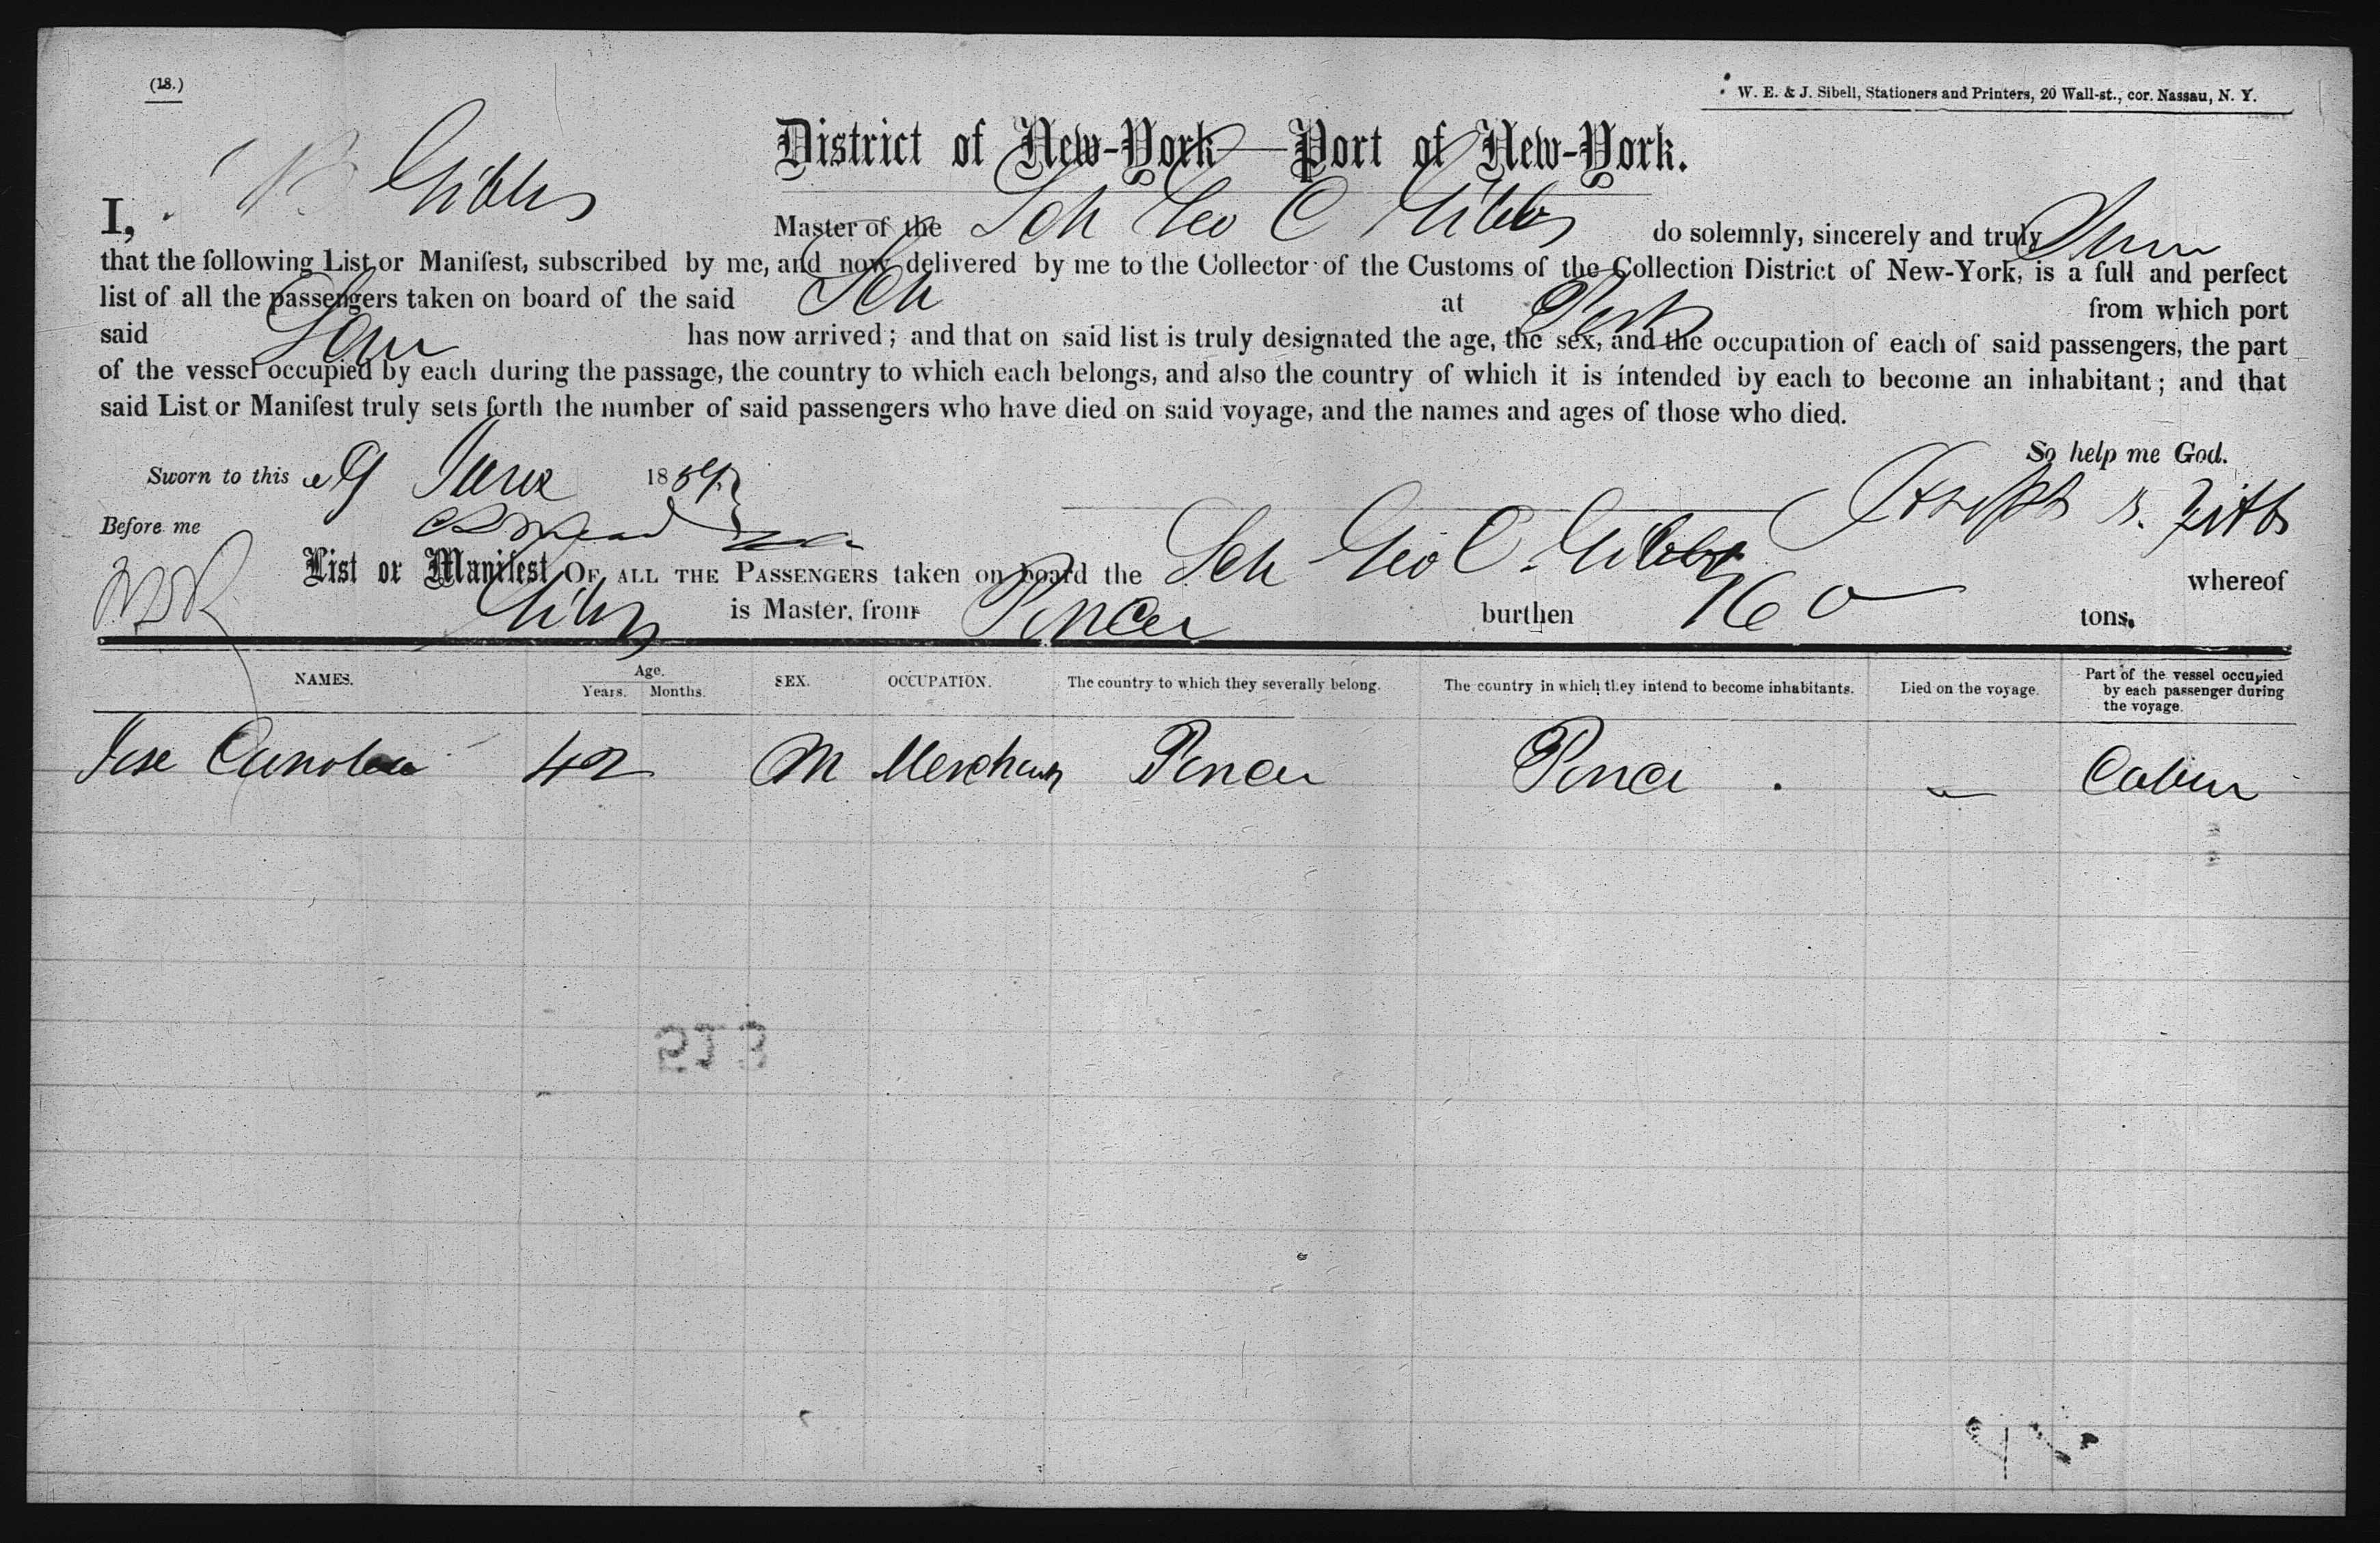 (18.)
W. E. & J. Sibell, Stationers and Printers, 20 Wall-st., cor. Nassau, N. Y.
District of New-York—Port of New-York.
I, Gibbs Master of the Sch Geo C Gibbs do solemnly, sincerely and truly Swear
that the following List or Manifest, subscribed by me, and now delivered by me to the Collector of the Customs of the Collection District of New-York, is a full and perfect
list of all the passengers taken on board of the said Sch at from which port
said has now arrived; and that on said list is truly designated the age, the sex, and the occupation of each of said passengers, the part
of the vessel occupied by each during the passage, the country to which each belongs, and also the country of which it is intended by each to become an inhabitant; and that
said List or Manifest truly sets forth the number of said passengers who have died on said voyage, and the names and ages of those who died.
So help me God.
Sworn to this 9 June 1859
Before me
Joseph B. Gibbs
List or Manifest OF ALL THE PASSENGERS taken on board the Sch Geo C. Gibbs whereof
Gibbs is Master, from Ponce burthen 160 tons.
NAMES. Age. Years. Months. SEX. OCCUPATION. The country to which they severally belong. The country in which they intend to become inhabitants. Died on the voyage. Part of the vessel occupied by each passenger during the voyage.
Jose 42 M Merchant Ponce Ponce Cabin